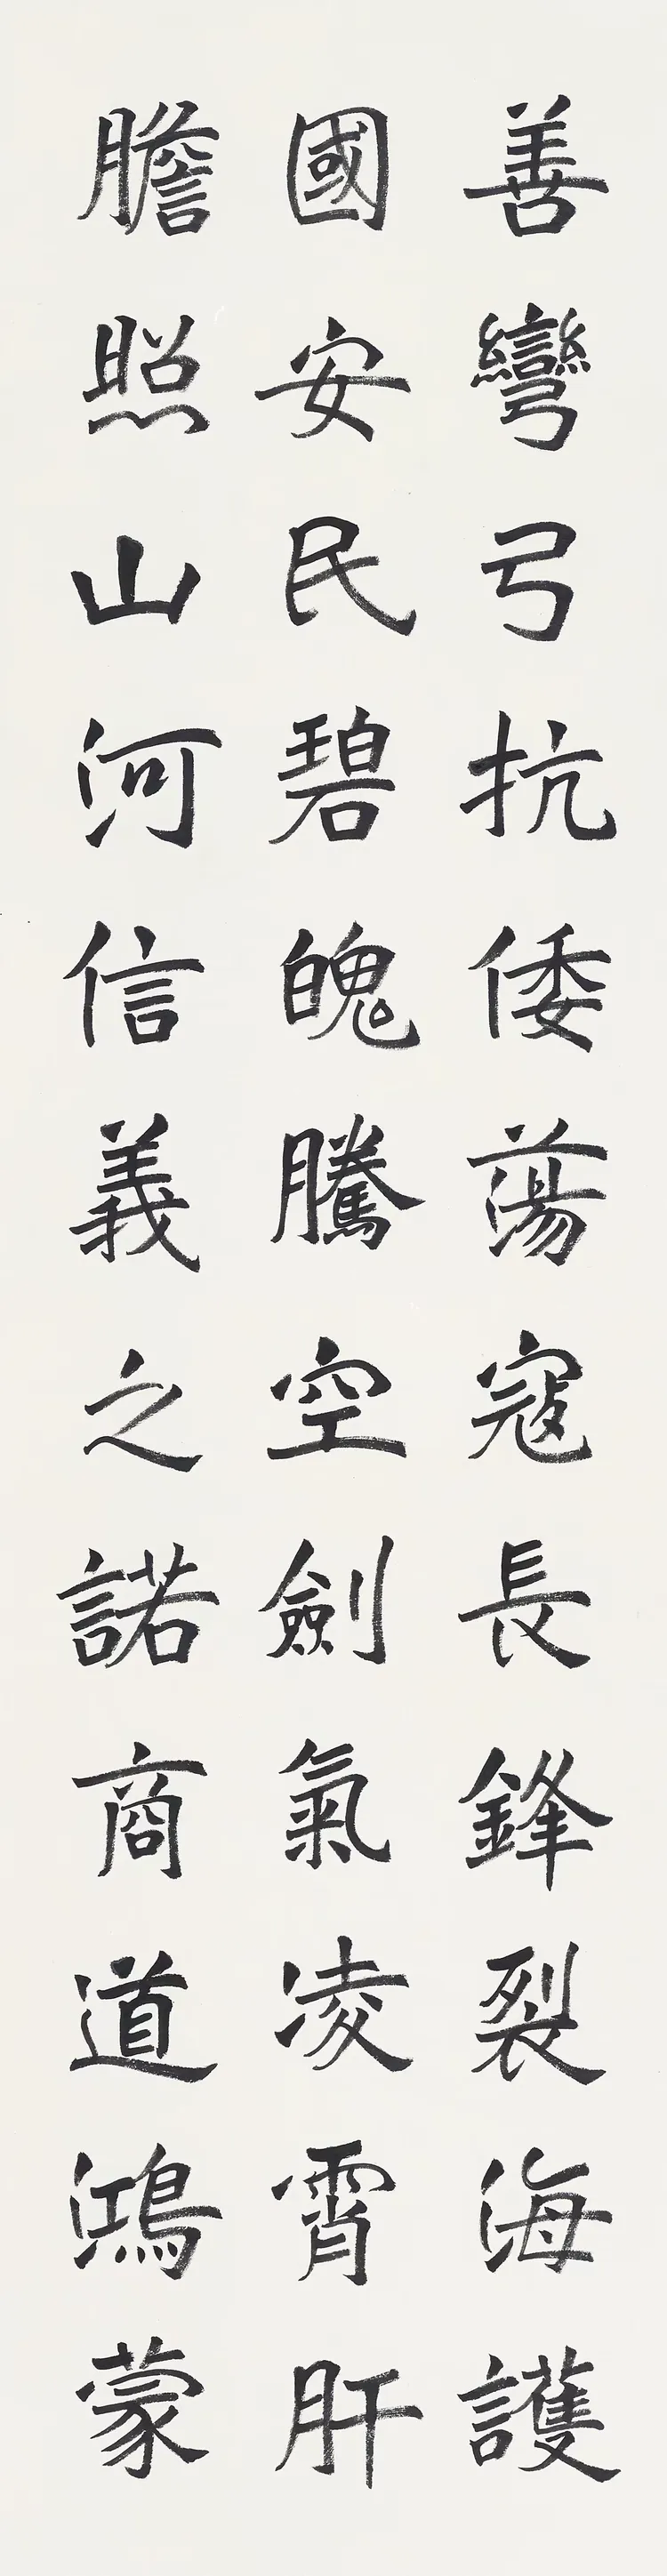 善彎弓抗倭蕩寇長鋒裂海護
國安民碧魄騰空劍氣凌霄肝
膽照山河信義之諾商道鴻蒙